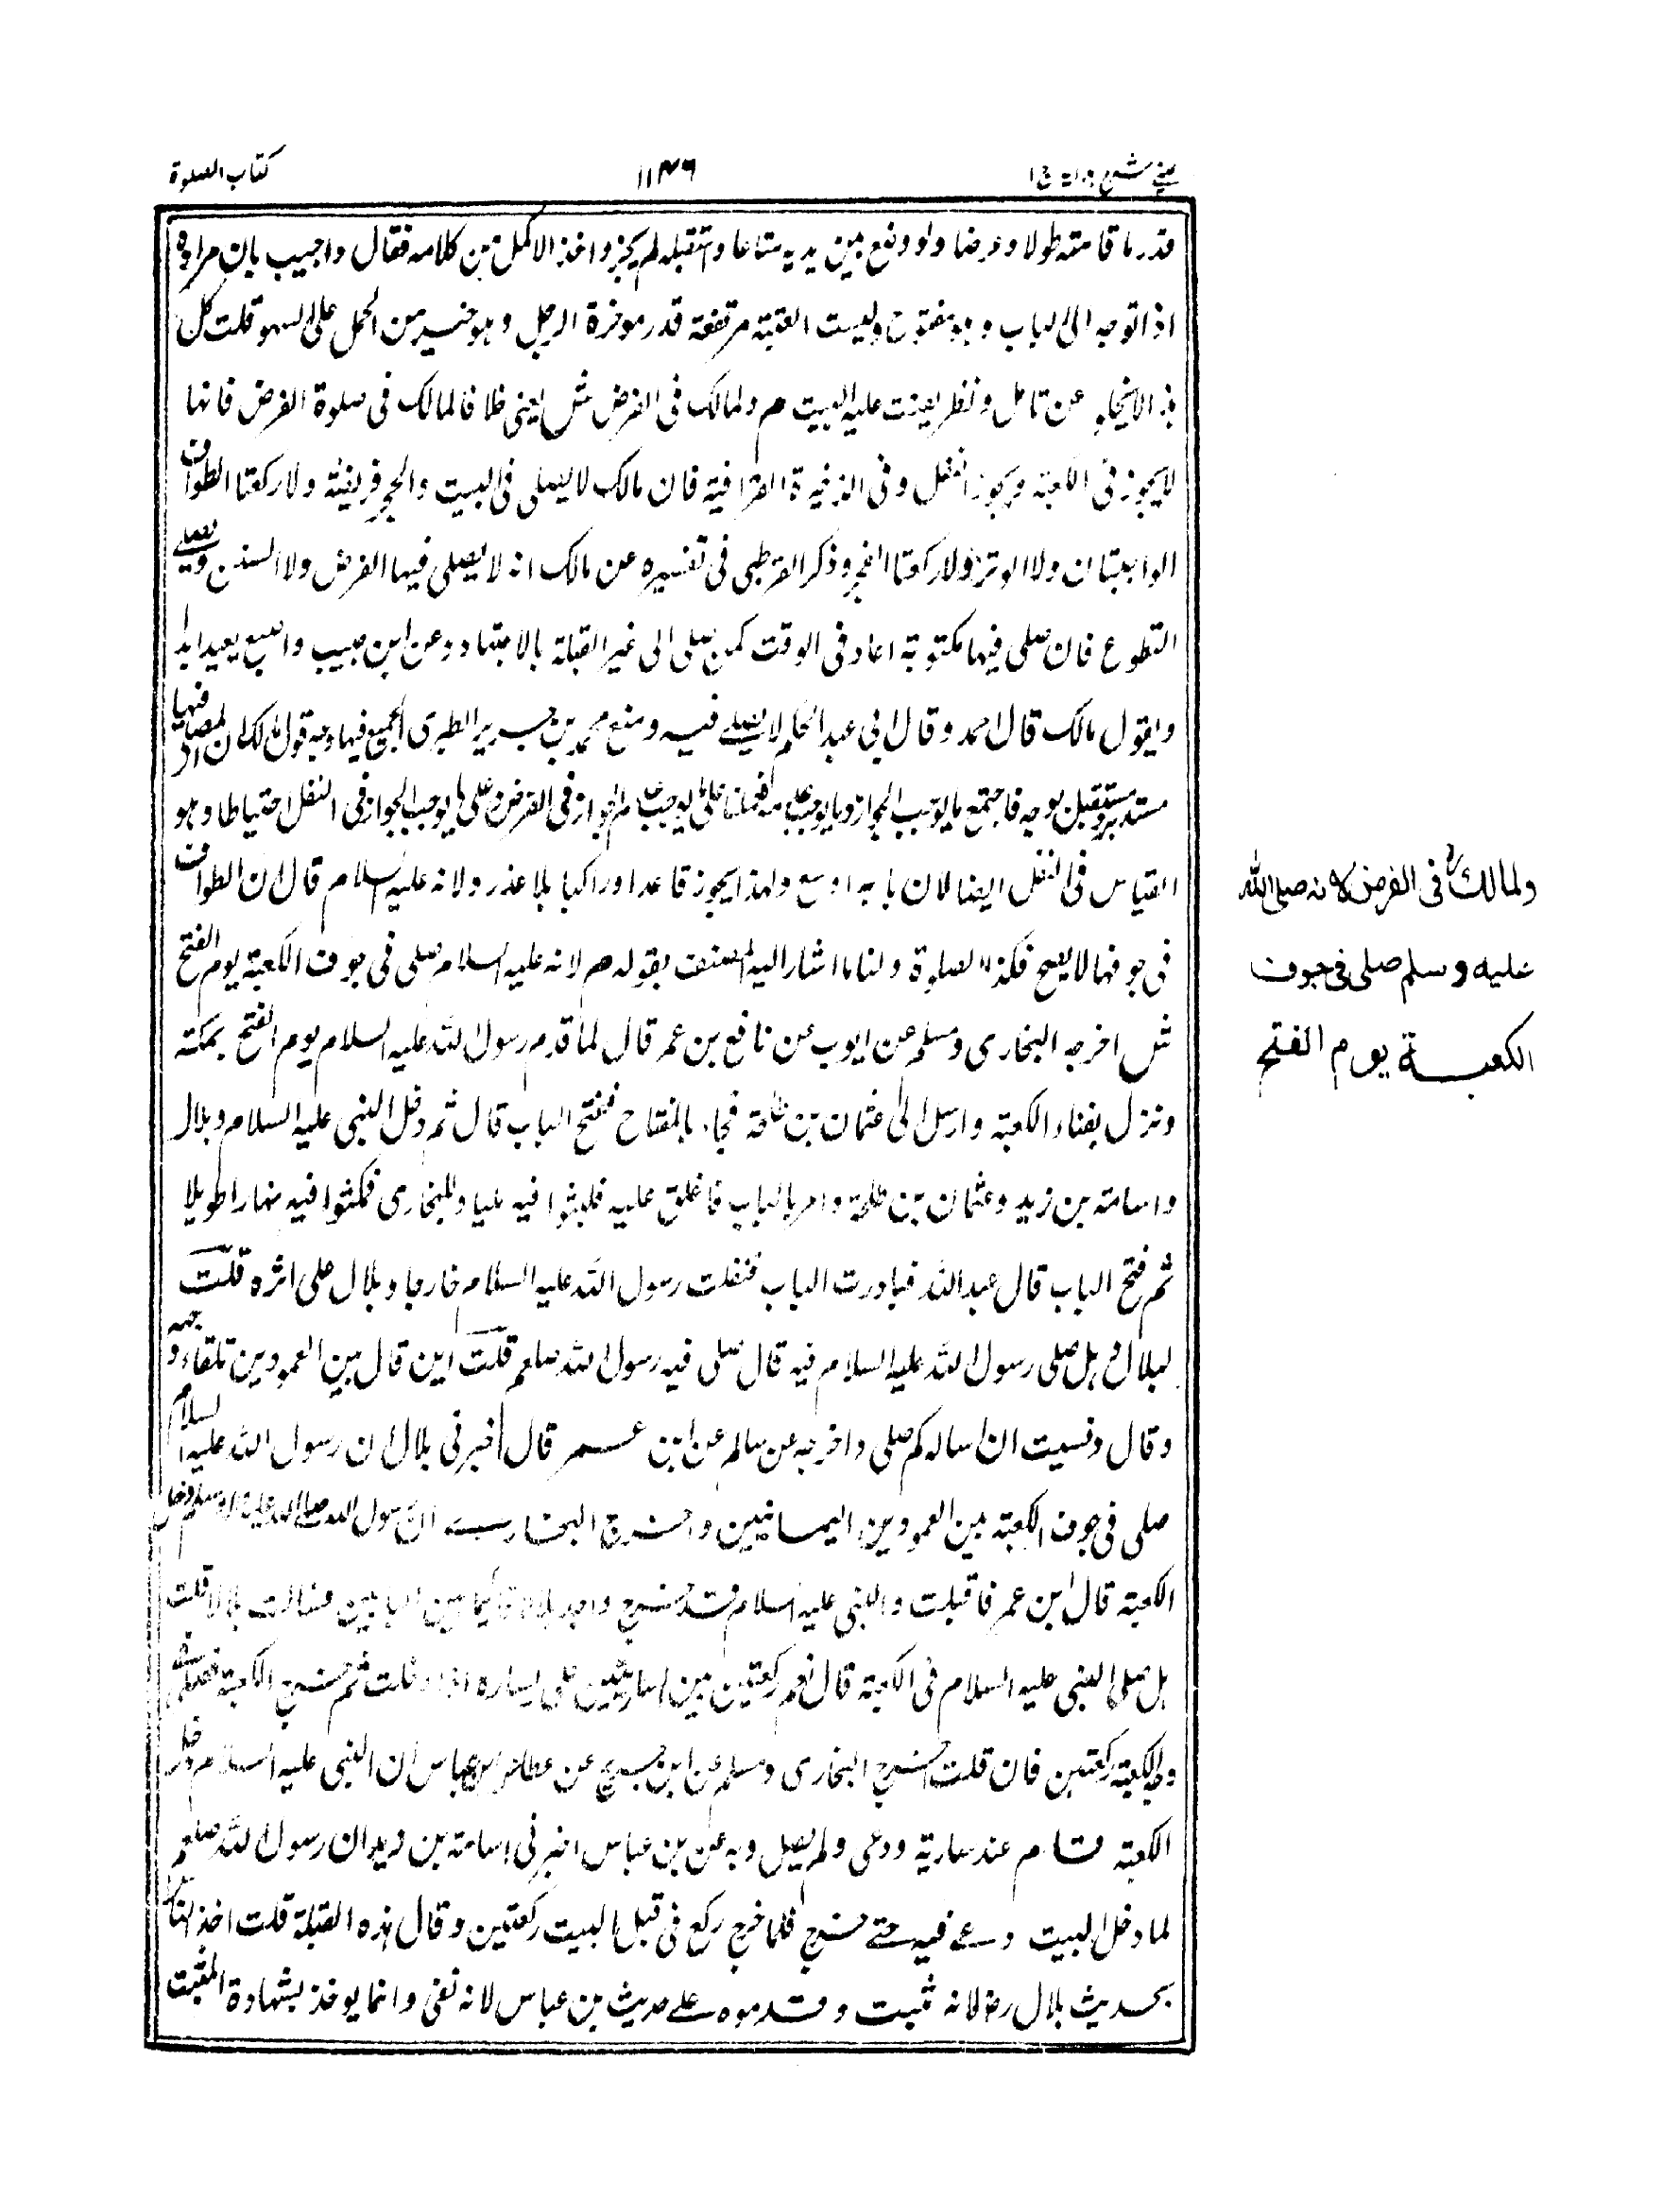 عينى شرح هداية ج ١
١١٣٦
كتاب الصلوة
قدر ما قامته طولا وعرضا ولو وضع بين يديه متاعا واستقبله لم يجز واخذ الاكمل من كلامه فقال واجيب بان مراده
اذا توجه الى الباب وهو مفتوح وليست العتبة مرتفعة قدر موخرة الرحل وهو خير من الحمل على السهو قلت كل
هذا لانجاء عن تامل ونظر يعنت عليه البيت م ولمالك فى الفرض ش يعنى خلافا لمالك فى صلوة الفرض فانها
لا يجوز فى الكعبة ويجوز النفل وفى الذخيرة القرافية قان مالك لا يصلى فى البيت والحجر فريضة ولا ركعتا الطواف
الواجبتان ولا الوتر ولا ركعتا الفجر وذكر القرطبى فى تفسيره عن مالك انه لا يصلى فيها الفرض ولا السنن ويصلے
التطوع فان صلى فيها مكتوبة اعاد فى الوقت كمن صلى الى غير القبلة بالاجتهاد وعن ابن حبيب واصبغ يعيد ابدا
وبقول مالك قال احمد وقال ابي عبد الحكم لا يصلے فيه ومنع محمد بن جرير الطبرى الجميع فيها وجه قول مالك ان المصلى فيها
مستدبر ومستقبل بوجه فاجتمع ما يوجب الجواز وما يوجب عدمه فعملنا على ما يوجب عدم الجواز فى الفرض وعلى ما يوجب الجواز فى النفل احتياطا وهو
القياس فى النفل ايضا لان بابه اوسع ولهذا يجوز قاعدا وراكبا بلا عذر ولانه عليه السلام قال ان الطواف
فى جوفها لا يصح فكذا الصلوة ولنا ما اشار اليه المصنف بقوله م لانه عليه السلام صلى فى جوف الكعبة يوم الفتح
ش اخرجه البخارى ومسلم عن ايوب عن نافع بن عمر قال لما قدم رسول الله عليه السلام يوم الفتح بمكة
ونزل بفناء الكعبة وارسل الى عثمان بن طلحة فجاء بالمفتاح ففتح الباب قال ثم دخل النبى عليه السلام وبلال
واسامة بن زيد وعثمان بن طلحة وامر بالباب فاغلق عليه فلبثوا فيه مليا وللبخارى فمكثوا فيه نهارا طويلا
ثم فتح الباب قال عبد الله فبادرت الباب فتلقت رسول الله عليه السلام خارجا وبلال على اثره قلت
لبلال هل صلى رسول الله عليه السلام فيه قال صلى فيه رسول الله صلعم قلت اين قال بين العمودين تلقاء وجهه
وقال ونسيت ان اساله كم صلى واخرجه عن سالم عن ابن عمر قال اخبرنى بلال ان رسول الله عليه السلام
صلى فى جوف الكعبة بين العمودين اليمانيين واخرج البخارے ان رسول الله صلے الله عليه وسلم دخل
الكعبة قال ابن عمر فاقبلت والنبى عليه السلام قد خرج واجد بلالا قائما بين البابين فسالت بلالا قلت
هل صلى النبى عليه السلام فى الكعبة قال نعم ركعتين بين الساريتين على يساره اذا دخلت ثم خرج الكعبة فصلى فى
وجه الكعبة ركعتين فان قلت اخرج البخارى ومسلم عن ابن جريج عن عطاء عن ابن عباس ان النبى عليه السلام دخل
الكعبة قام عند سارية ودعى ولم يصل وبه عن بن عباس اخبرنى اسامة بن زيد ان رسول الله صلعم
لما دخل البيت دعے فيه حتے خرج فلما خرج ركع فى قبل البيت ركعتين وقال هذه القبلة قلت اخذ الناس
بحديث بلال رض لانه مثبت وقدموه علے حديث بن عباس لانه نفى وانما يوخذ بشهادة المثبت
ولمالك رح فى الفرض لانه صلى الله
عليه وسلم صلى فى جوف
الكعبة يوم الفتح